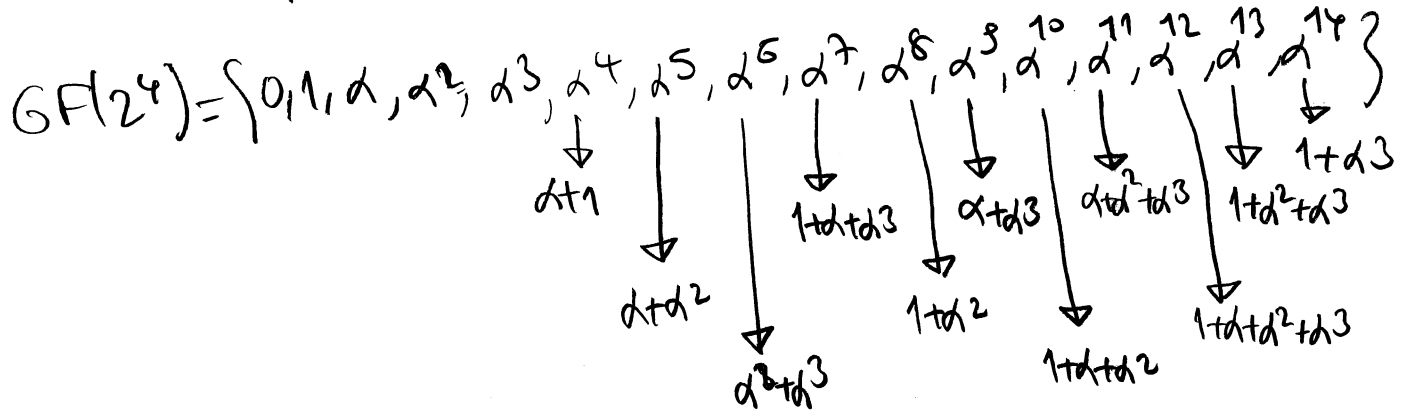 GF(2⁴) = {0, 1, α, α², α³, α⁴, α⁵, α⁶, α⁷, α⁸, α⁹, α¹⁰, α¹¹, α¹², α¹³, α¹⁴}
α+1
1+α+α3
α+α3
α+α²+α3
1+α²+α3
1+α3
α+α2
1+α2
1+α+α²+α3
1+α+α2
+α3